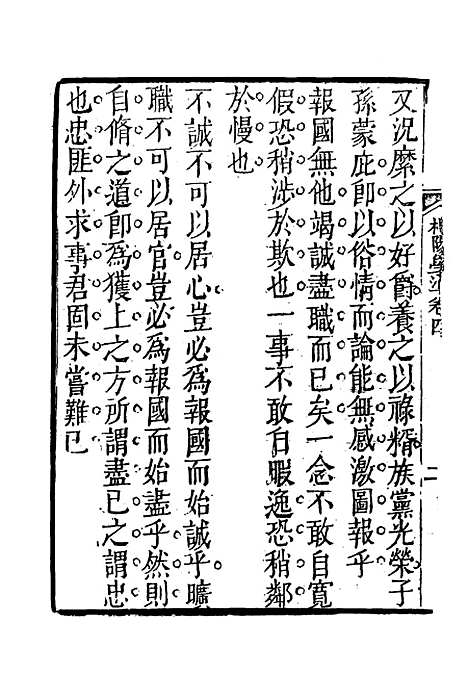 又況縻之以好爵養之以祿糈族黨光榮子
孫蒙庇卽以俗情而論能無感激圖報乎
報國無他竭誠盡職而已矣一念不敢自寬
假恐稍涉於欺也一事不敢自暇逸恐稍鄰
於慢也
不誠不可以居心豈必為報國而始誠乎曠
職不可以居官豈必為報國而始盡乎然則
自脩之道卽為獲上之方所謂盡已之謂忠
也忠匪外求事君固未嘗難已
學準卷四
二